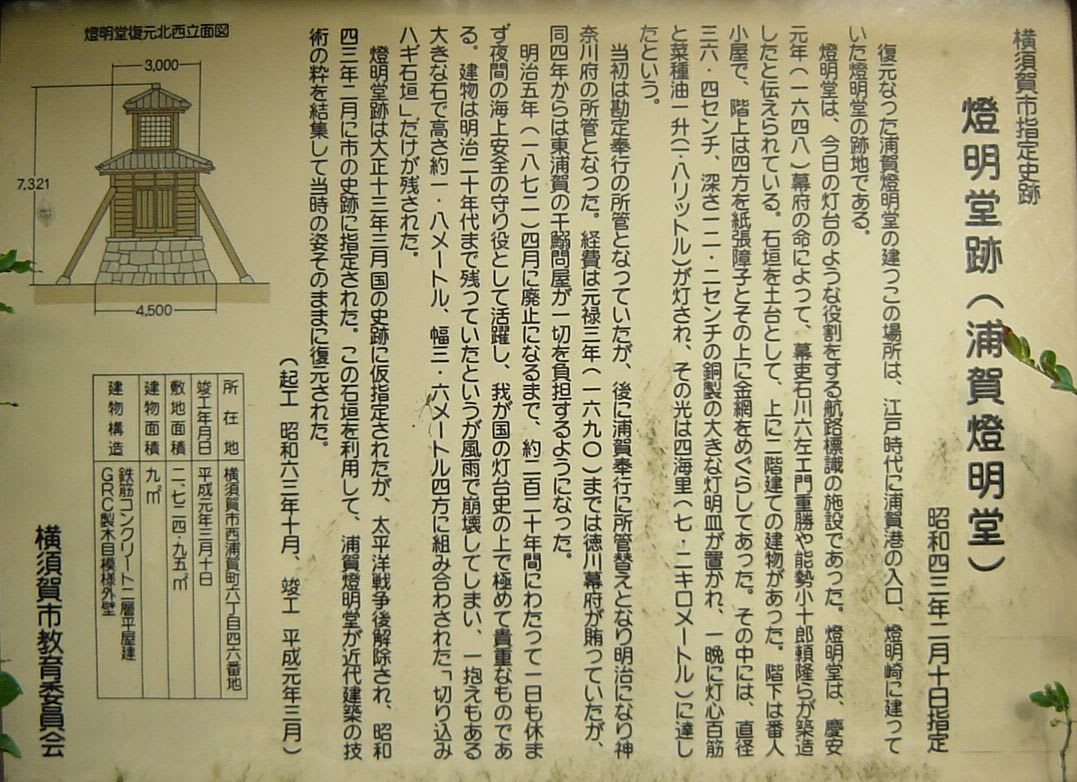 横須賀市指定史跡
燈明堂跡（浦賀燈明堂）
昭和四三年二月十日指定
復元なった浦賀燈明堂の建つこの場所は、江戸時代に浦賀港の入口、燈明崎に建って
いた燈明堂の跡地である。
燈明堂は、今日の灯台のような役割をする航路標識の施設であった。燈明堂は、慶安
元年（一六四八）幕府の命によって、幕吏石川六左エ門重勝や能勢小十郎頼隆らが築造
したと伝えられている。石垣を土台として、上に二階建ての建物があった。階下は番人
小屋で、階上は四方を紙張障子とその上に金網をめぐらしてあった。その中には、直径
三六・四センチ、深さ一二・二センチの銅製の大きな灯明皿が置かれ、一晩に灯心百筋
と菜種油一升（一・八リットル）が灯され、その光は四海里（七・二キロメートル）に達し
たという。
当初は勘定奉行の所管となっていたが、後に浦賀奉行に所管替えとなり明治になり神
奈川府の所管となった。経費は元禄三年（一六九〇）までは徳川幕府が賄っていたが、
同四年からは東浦賀の干鰯問屋が一切を負担するようになった。
明治五年（一八七二）四月に廃止になるまで、約二百二十年間にわたって一日も休ま
ず夜間の海上安全の守り役として活躍し、我が国の灯台史の上で極めて貴重なものであ
る。建物は明治二十年代まで残っていたというが風雨で崩壊してしまい、一抱えもある
大きな石で高さ約一・八メートル、幅三・六メートル四方に組み合わされた「切り込み
ハギ石垣」だけが残された。
燈明堂跡は大正十三年三月国の史跡に仮指定されたが、太平洋戦争後解除され、昭和
四三年二月に市の史跡に指定された。この石垣を利用して、浦賀燈明堂が近代建築の技
術の粋を結集して当時の姿そのままに復元された。
（起工 昭和六三年十月、竣工 平成元年三月）
燈明堂復元北西立面図
3,000
7,321
4,500
所在地 横須賀市西浦賀町六丁目四六番地
竣工年月日 平成元年三月十日
敷地面積 二、七二四・九五㎡
建物面積 九㎡
建物構造 鉄筋コンクリート二層平屋建
ＧＲＣ製木目模様外壁
横須賀市教育委員会